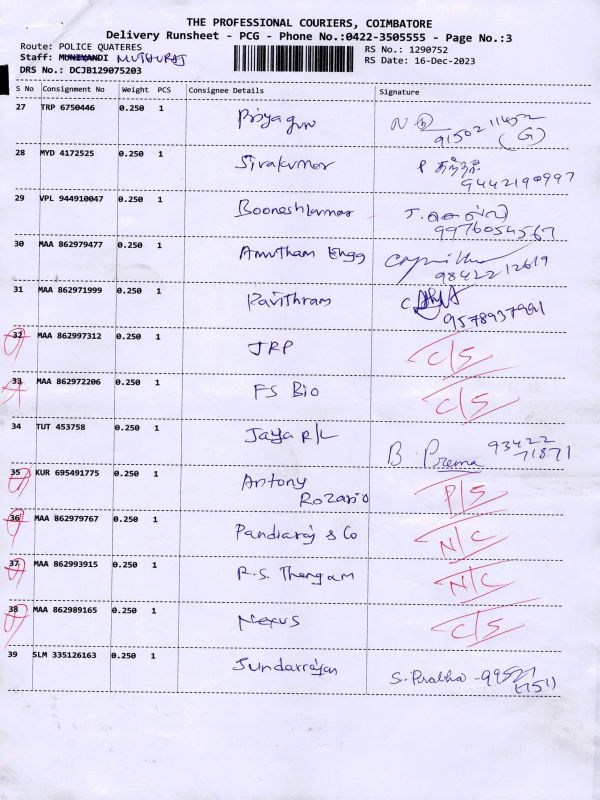 THE PROFESSIONAL COURIERS, COIMBATORE
Delivery Runsheet - PCG - Phone No.:0422-3505555 - Page No.:3
Route: POLICE QUATERES
RS No.: 1290752
Staff: MUNIYANDI MUTHURAJ
RS Date: 16-Dec-2023
DRS No.: DCJB129075203
S No Consignment No Weight PCS Consignee Details Signature
27 TRP 6750446 0.250 1 Priyaguru
(G)
28 MYD 4172525 0.250 1 Sivakumar
9442190997
29 VPL 944910047 0.250 1 Booneshkumar
9976054567
30 MAA 862979477 0.250 1 Amutham Engg
98422 12619
31 MAA 862971999 0.250 1 Pavithram
32 MAA 862997312 0.250 1 JRP C/S
33 MAA 862972206 0.250 1 FS Bio C/S
34 TUT 453758 0.250 1 Jaya R/L B. Prema 93422
71871
35 KUR 695491775 0.250 1 Antony
Rozario P/S
36 MAA 862979767 0.250 1 Pandiaraj & Co N/C
37 MAA 862993915 0.250 1 R.S. Thangam N/C
38 MAA 862989165 0.250 1 Nexus C/S
39 SLM 335126163 0.250 1 Sundarrajan
S. Prabha